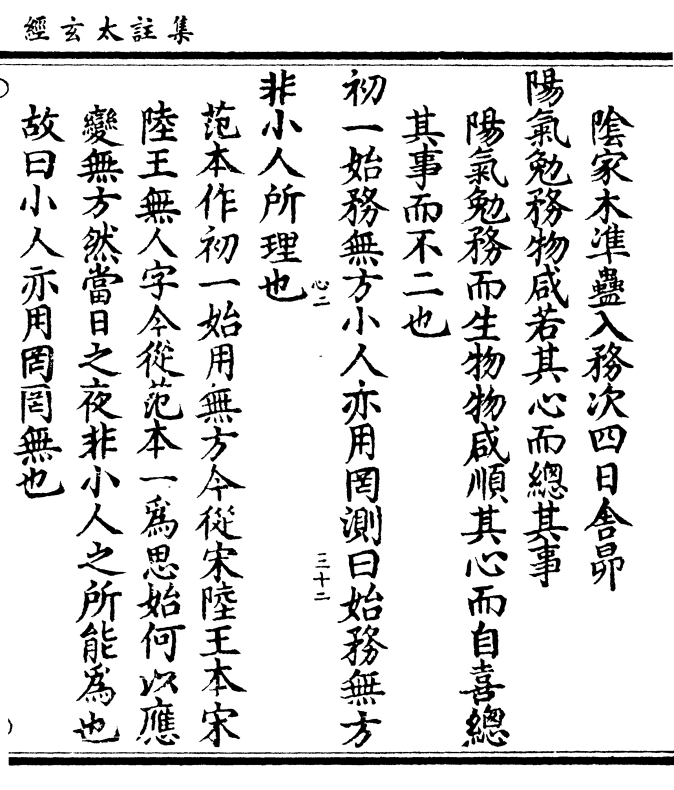 集註太玄經
陰家木準蠱入務次四日舍昴
陽氣勉務物咸若其心而總其事
陽氣勉務而生物物咸順其心而自喜總
其事而不二也
初一始務無方小人亦用罔測曰始務無方
非小人所理也
范本作初一始用無方今從宋陸王本宋
陸王無人字今從范本一爲思始何以應
變無方然當日之夜非小人之所能爲也
故曰小人亦用罔罔無也
心二
三十二